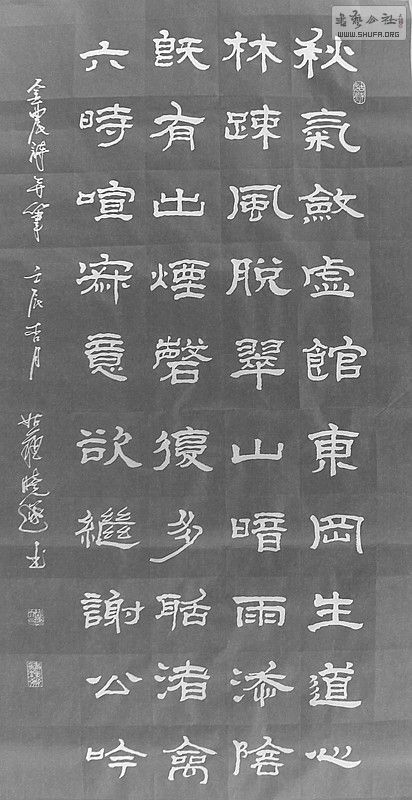 秋氣斂虛館東岡生道心
林踈風脫翠山暗雨添陰
既有出煙磬復多聒渚禽
六時喧寂意欲繼謝公吟
金農詩并筆 壬辰杏月 姑蘇曉書
书艺公社
WWW.SHUFA.ORG